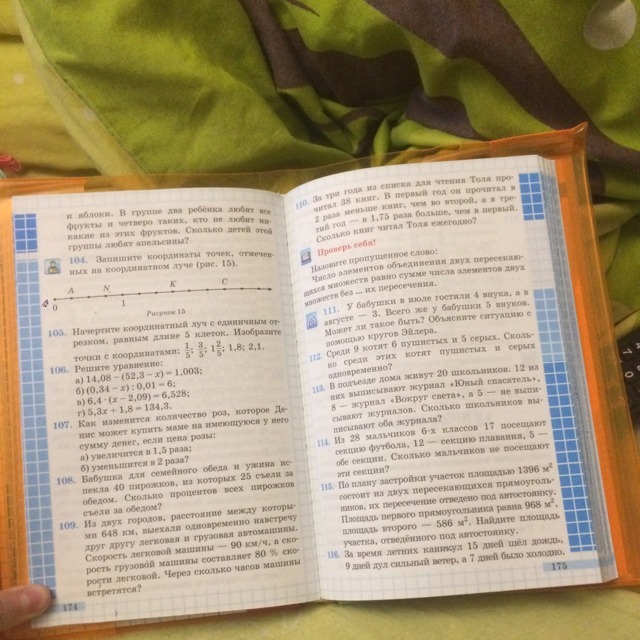 и яблоки. В группе два ребёнка любят все
фрукты и четверо таких, кто не любит ни-
какие из этих фруктов. Сколько детей этой
группы любят апельсины?
104. Запишите координаты точек, отмечен-
ных на координатном луче (рис. 15).
A N K C
0 1
Рисунок 15
105. Начертите координатный луч с единичным от-
резком, равным длине 5 клеток. Изобразите
точки с координатами: 1/5; 3/5; 1 2/5; 1,8; 2,1.
106. Решите уравнение:
а) 14,08 − (52,3 − x) = 1,003;
б) (0,34 − x) : 0,01 = 6;
в) 6,4 · (x − 2,09) = 6,528;
г) 5,3x + 1,8 = 134,3.
107. Как изменится количество роз, которое Де-
нис может купить маме на имеющуюся у него
сумму денег, если цена розы:
а) увеличится в 1,5 раза;
б) уменьшится в 2 раза?
108. Бабушка для семейного обеда и ужина ис-
пекла 40 пирожков, из которых 25 съели за
обедом. Сколько процентов всех пирожков
съели за обедом?
109. Из двух городов, расстояние между которы-
ми 648 км, выехали одновременно навстречу
друг другу легковая и грузовая автомашины.
Скорость легковой машины — 90 км/ч, а ско-
рость грузовой машины составляет 80 % ско-
рости легковой. Через сколько часов машины
встретятся?
174
110. За три года из списка для чтения Толя про-
читал 38 книг. В первый год он прочитал в
2 раза меньше книг, чем во второй, а в тре-
тий год — в 1,75 раза больше, чем в первый.
Сколько книг читал Толя ежегодно?
Проверь себя!
Назовите пропущенное слово:
Число элементов объединения двух пересекаю-
щихся множеств равно сумме числа элементов двух
множеств без ... их пересечения.
111. У бабушки в июле гостили 4 внука, а в
августе — 3. Всего же у бабушки 5 внуков.
Может ли такое быть? Объясните ситуацию с
помощью кругов Эйлера.
112. Среди 9 котят 6 пушистых и 5 серых. Сколь-
ко среди этих котят пушистых и серых
одновременно?
113. В подъезде дома живут 20 школьников. 12 из
них выписывают журнал «Юный спасатель»,
8 — журнал «Вокруг света», а 5 — не выпи-
сывают журналов. Сколько школьников вы-
писывают оба журнала?
114. Из 28 мальчиков 6-х классов 17 посещают
секцию футбола, 12 — секцию плавания, 5 —
обе секции. Сколько мальчиков не посещают
эти секции?
115. По плану застройки участок площадью 1396 м²
состоит из двух пересекающихся прямоуголь-
ников, их пересечение отведено под автостоянку.
Площадь первого прямоугольника равна 968 м²,
площадь второго — 586 м². Найдите площадь
участка, отведённого под автостоянку.
116. За время летних каникул 15 дней шёл дождь,
9 дней дул сильный ветер, а 7 дней было холодно.
175